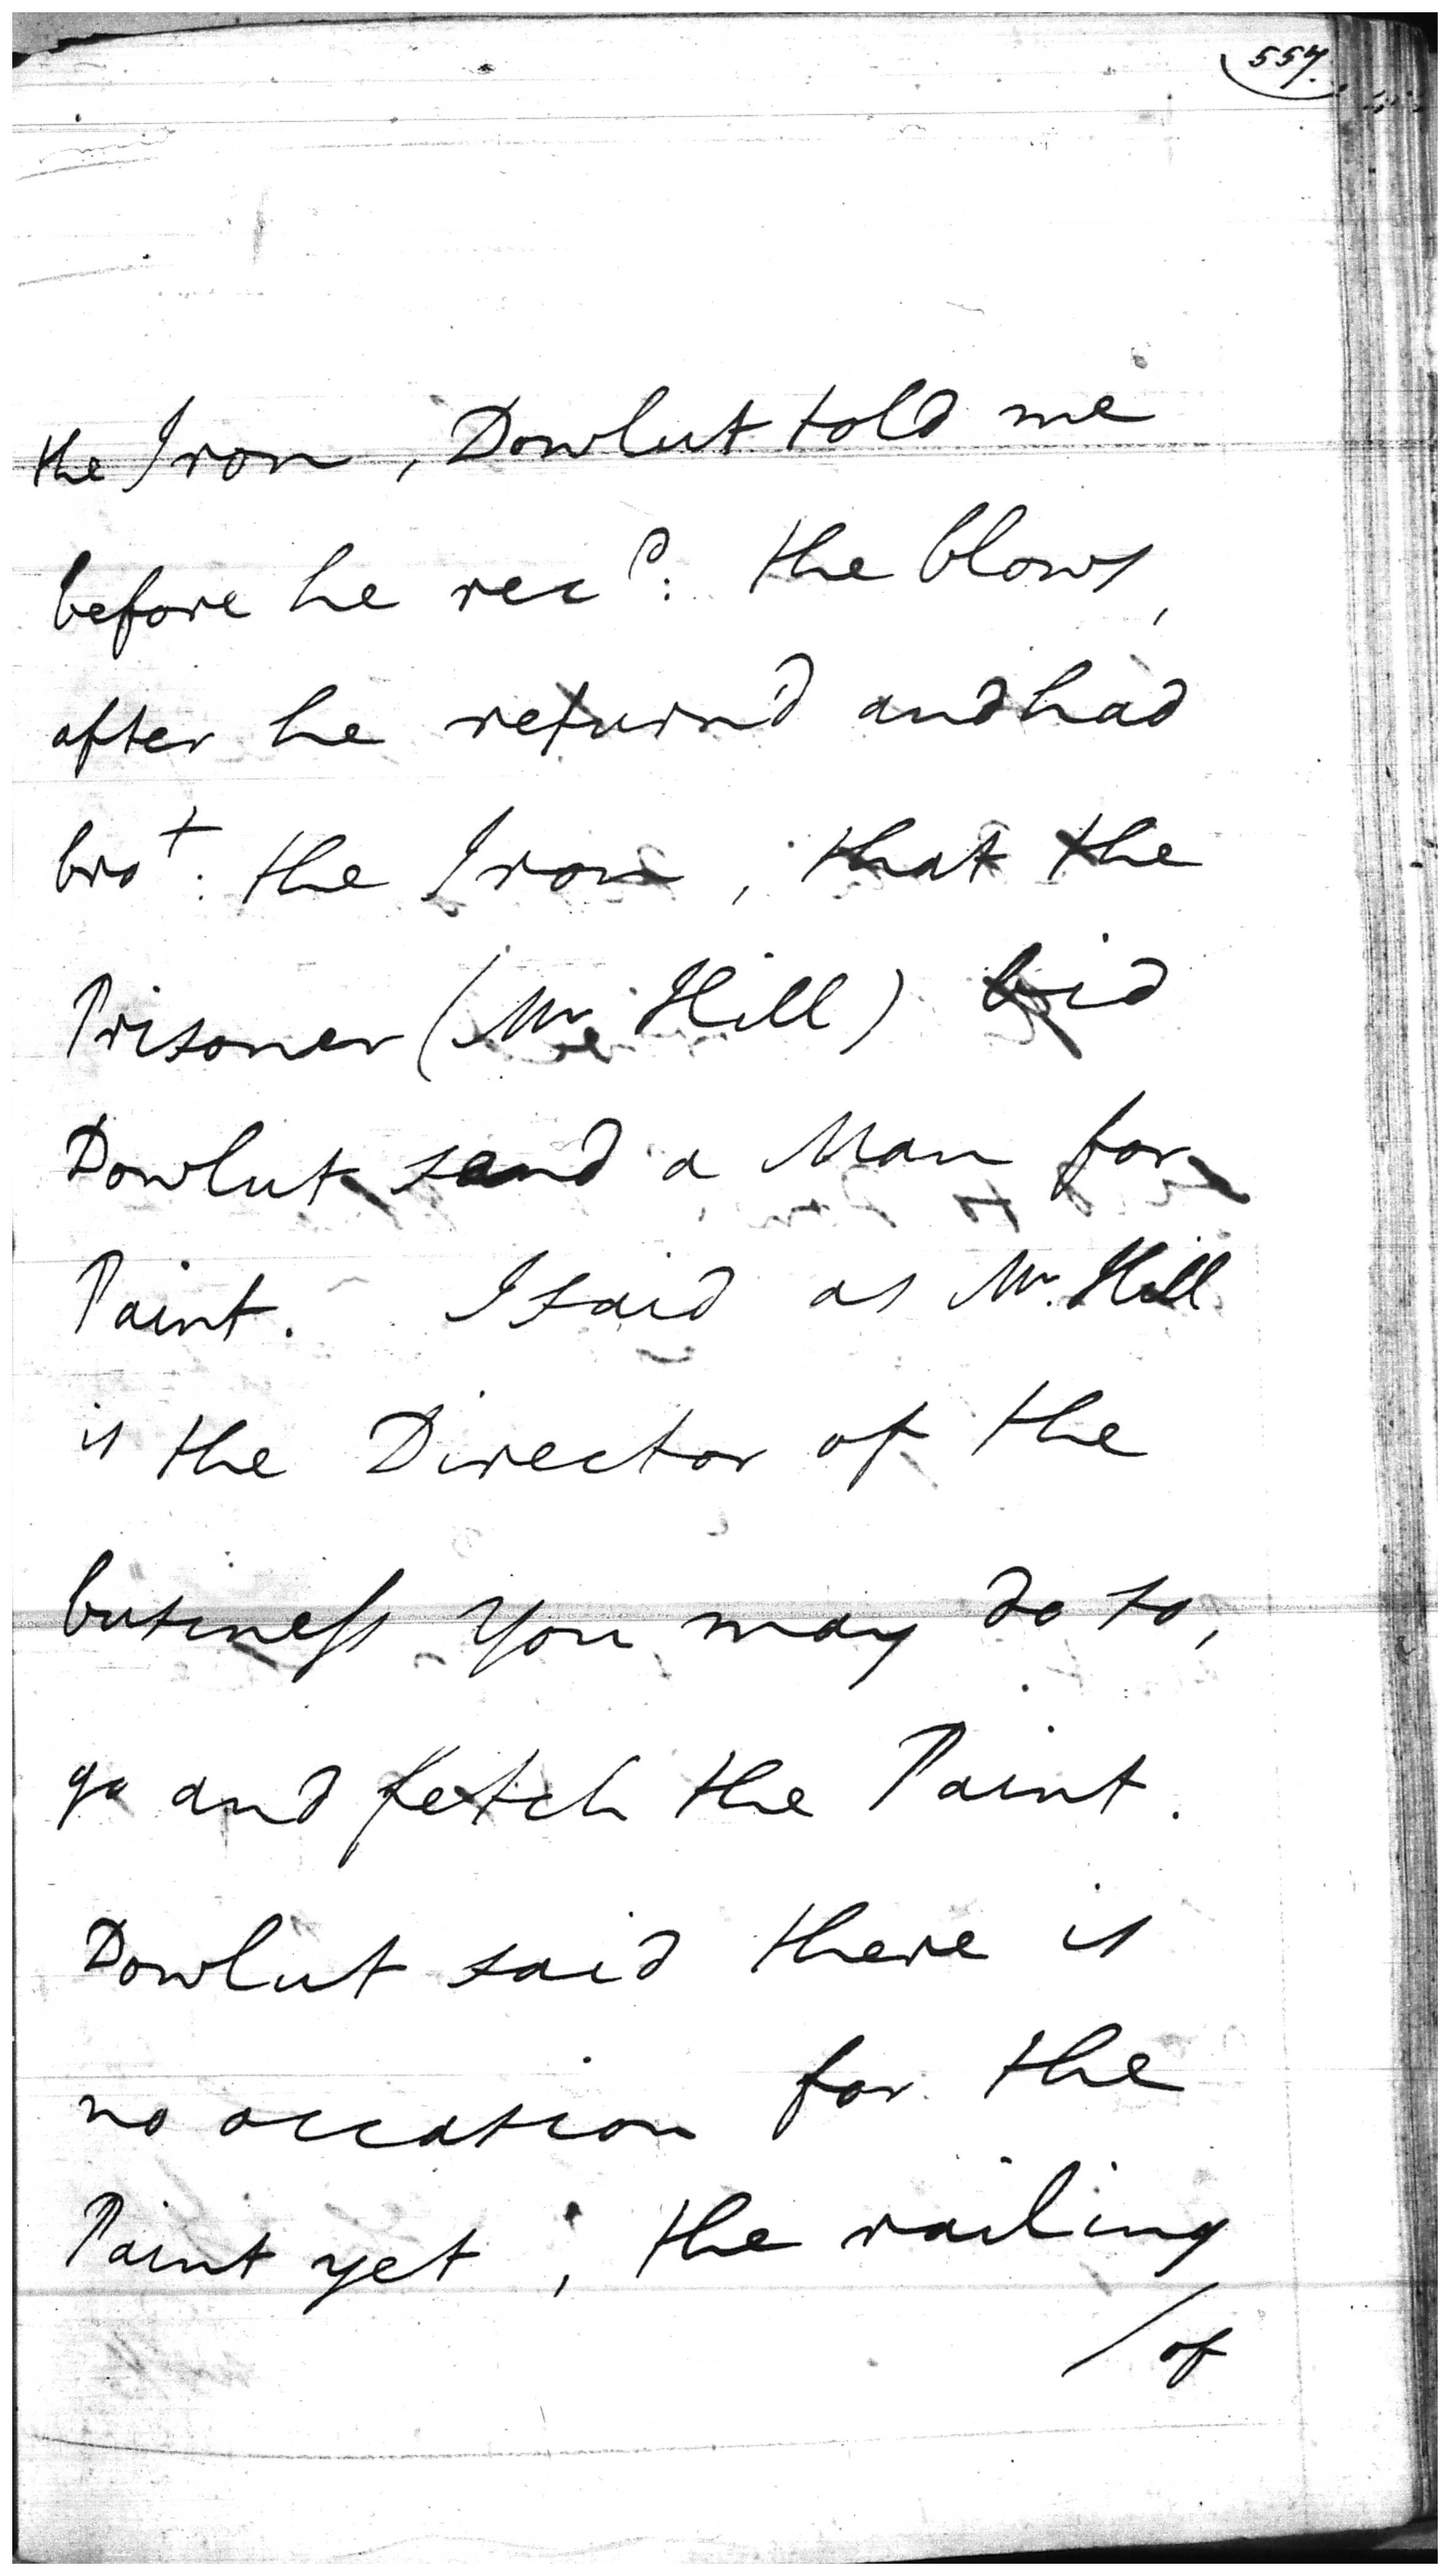 557.
the Iron, Dowlut told me
before he rec^d: the blows,
after he return'd and had
bro^t: the Iron, that the
Prisoner (Mr Hill) bid
Dowlut send a Man for
Paint. I said as Mr. Hill
is the Director of the
business you may do so,
go and fetch the Paint.
Dowlut said there is
no occasion for the
Paint yet, the railing
/of